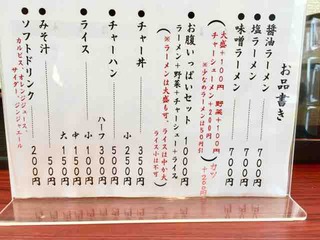 お品書き
●醤油ラーメン 700円
●塩ラーメン 700円
●味噌ラーメン 700円
(大盛+100円 野菜+100円
チャーシューメン+200円
※少なめラーメンは50円引)
カツ
+200円
●お腹いっぱいセット 1000円
ラーメン+野菜+チャーシュー+ライス
(※ラーメンは大盛も可。ライスは中か大
ライス小は不可)
●チャー丼 350円
●チャーハン 小 250円
ハーフ 300円
●ライス 小 100円
中 150円
大
●みそ汁 50円
●ソフトドリンク 200円
カルピス・オレンジジュース
サイダー・ジンジャーエール